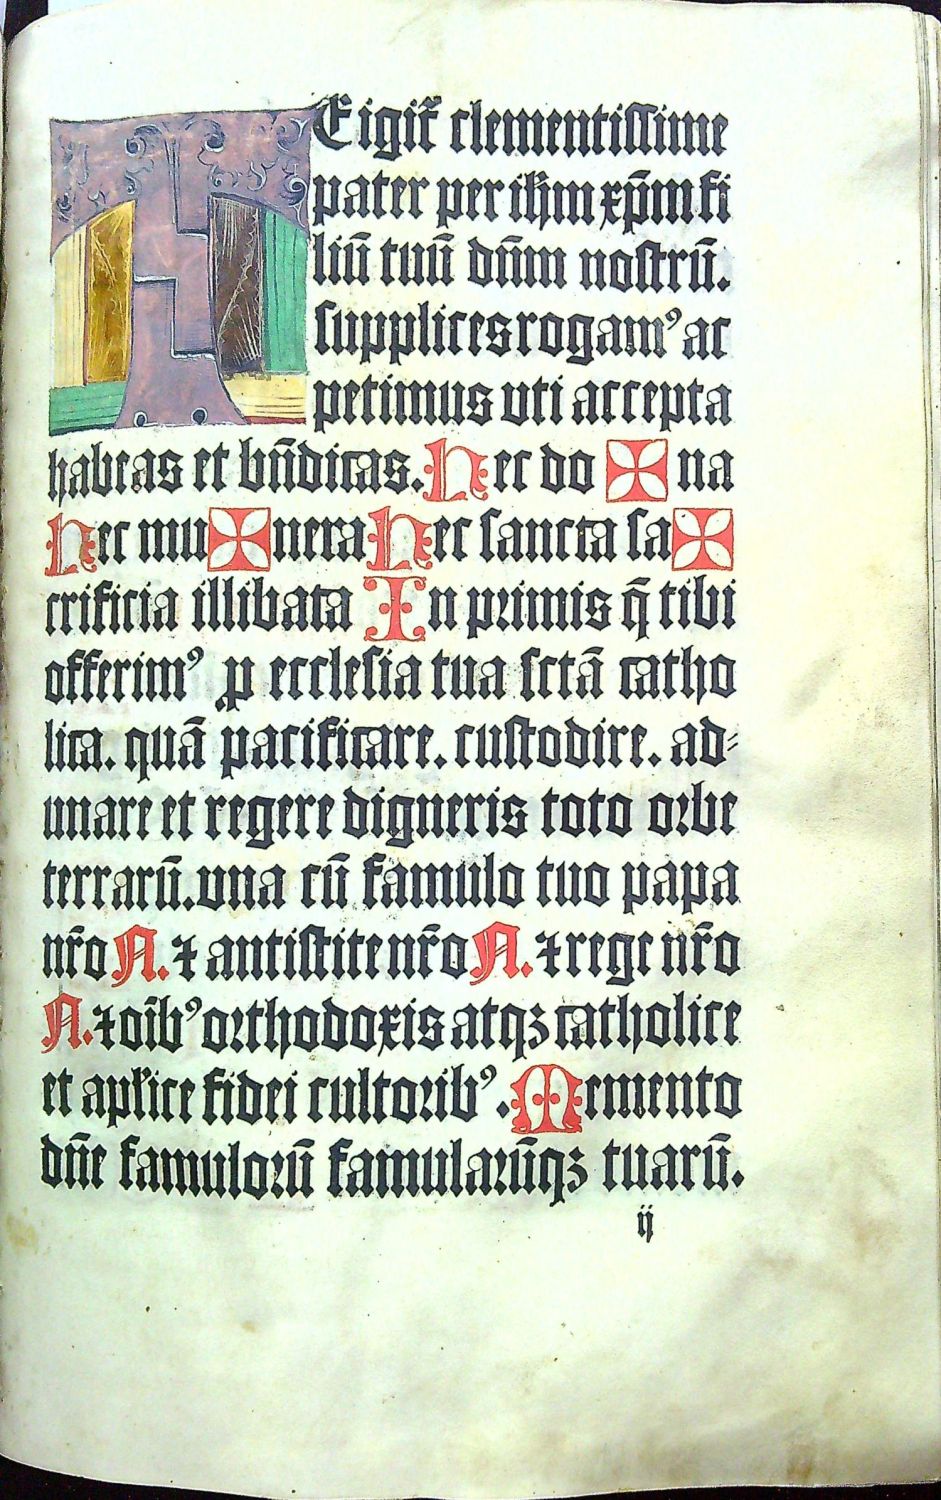 TE igit̃ clementissime
pater per ih̃m xp̃m fi
liũ tuũ dñm nostrũ.
supplices rogamꝰ ac
petimus uti accepta
habeas et bñdicas. Hec do ✠ na
Hec mu ✠ nera Hec sancta sa ✠
crificia illibata In primis q̃ tibi
offerimꝰ ꝑ ecclesia tua sctã catho
lica. quã pacificare. custodire. ad⸗
unare et regere digneris toto orbe
terrarũ. una cũ famulo tuo papa
nr̃o N. ⁊ antistite nr̃o N. ⁊ rege nr̃o
N. ⁊ oı̃bꝰ orthodoxis atqꝫ catholice
et apl̃ice fidei cultoribꝰ. Memento
dñe famulorũ famularũqꝫ tuarũ.
ij